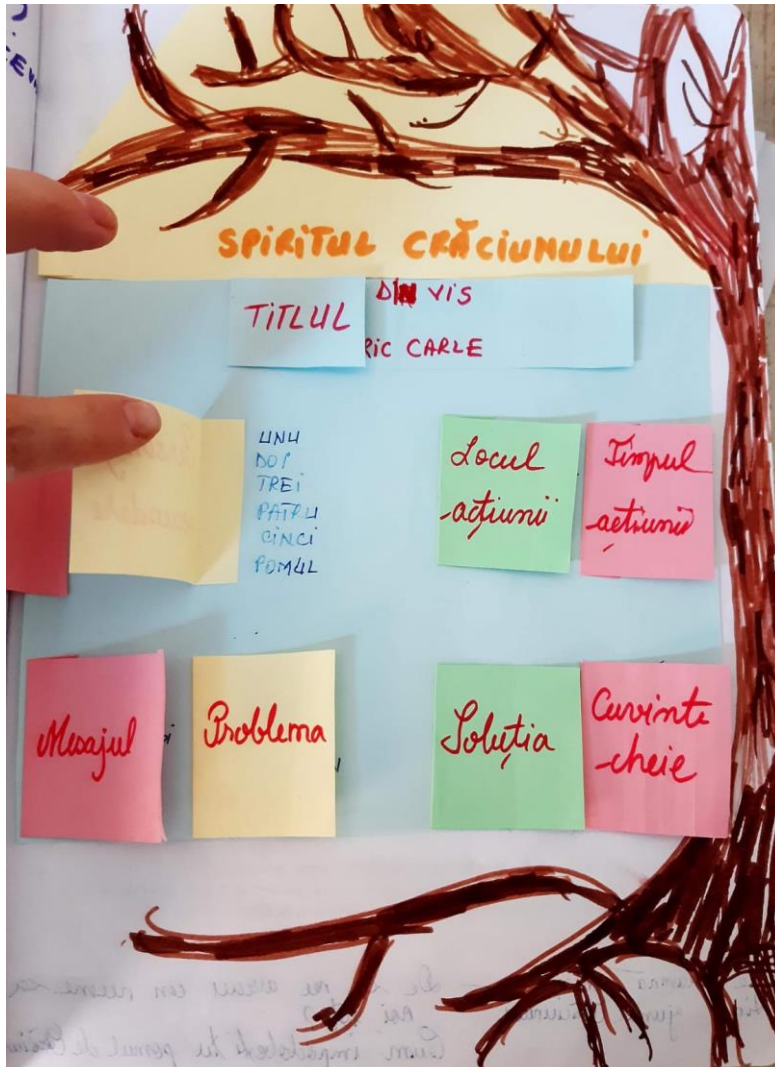 SPIRITUL CRĂCIUNULUI
TITLUL
DIN VIS
RIC CARLE
UNU
DOI
TREI
PATRU
CINCI
POMUL
Locul
acțiunii
Timpul
acțiunii
Mesajul
Problema
Soluția
Cuvinte
cheie